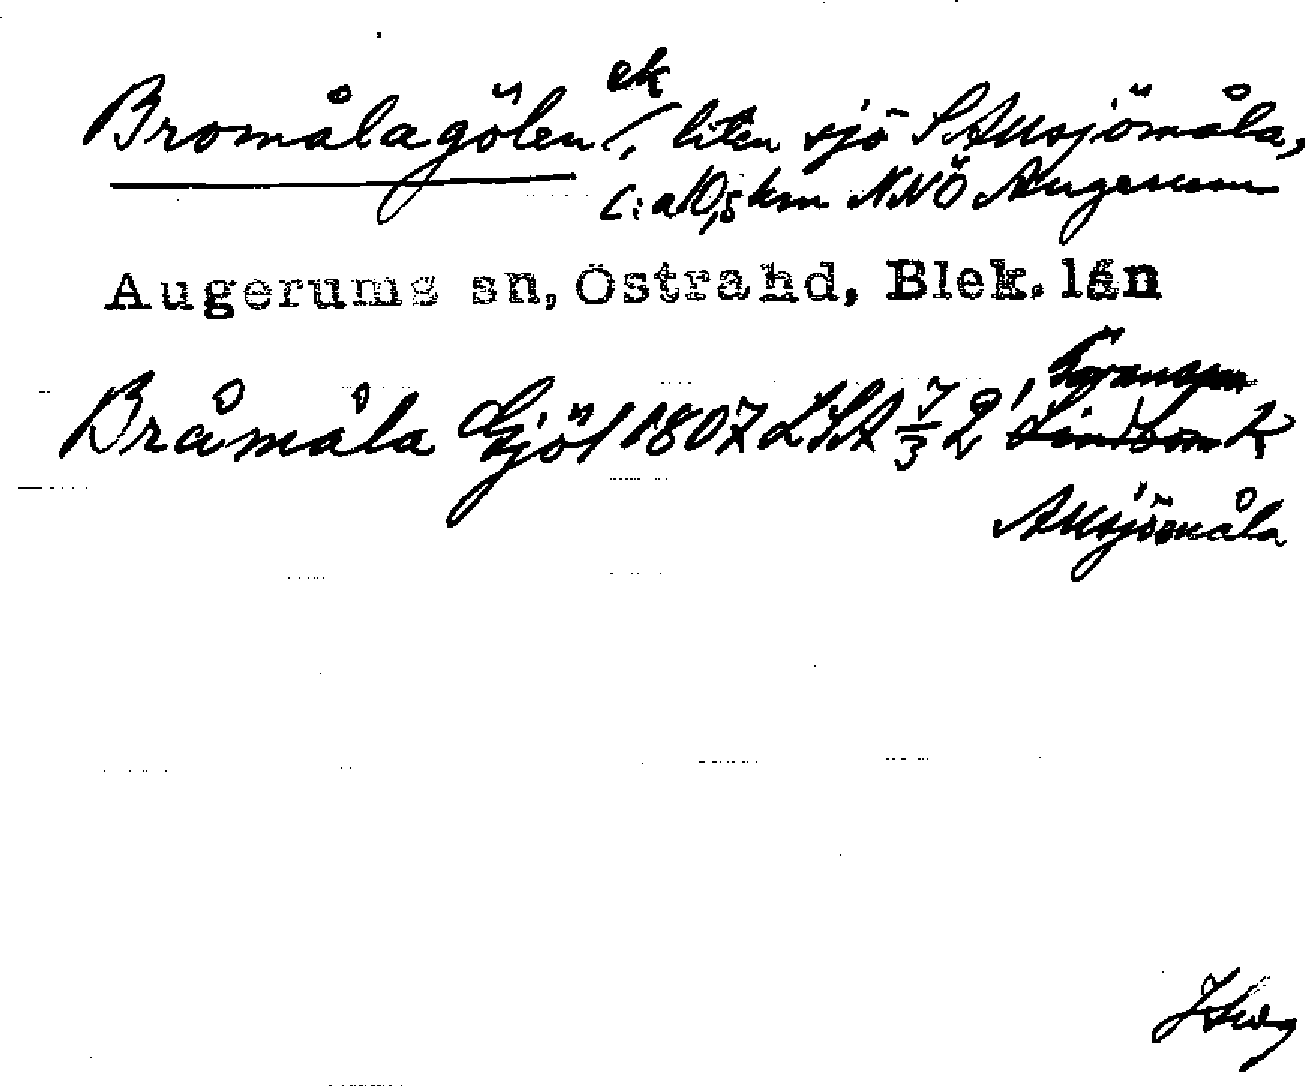 Bromålagölen ek
/. liten sjö S Allsjömåla,
c:a 10,5 km NNÖ Augerum
Augerums sn, Östra hd, Blek. län
Bråmåla Sjö/ 1807 LSA 7/3 2,
Allsjömåla